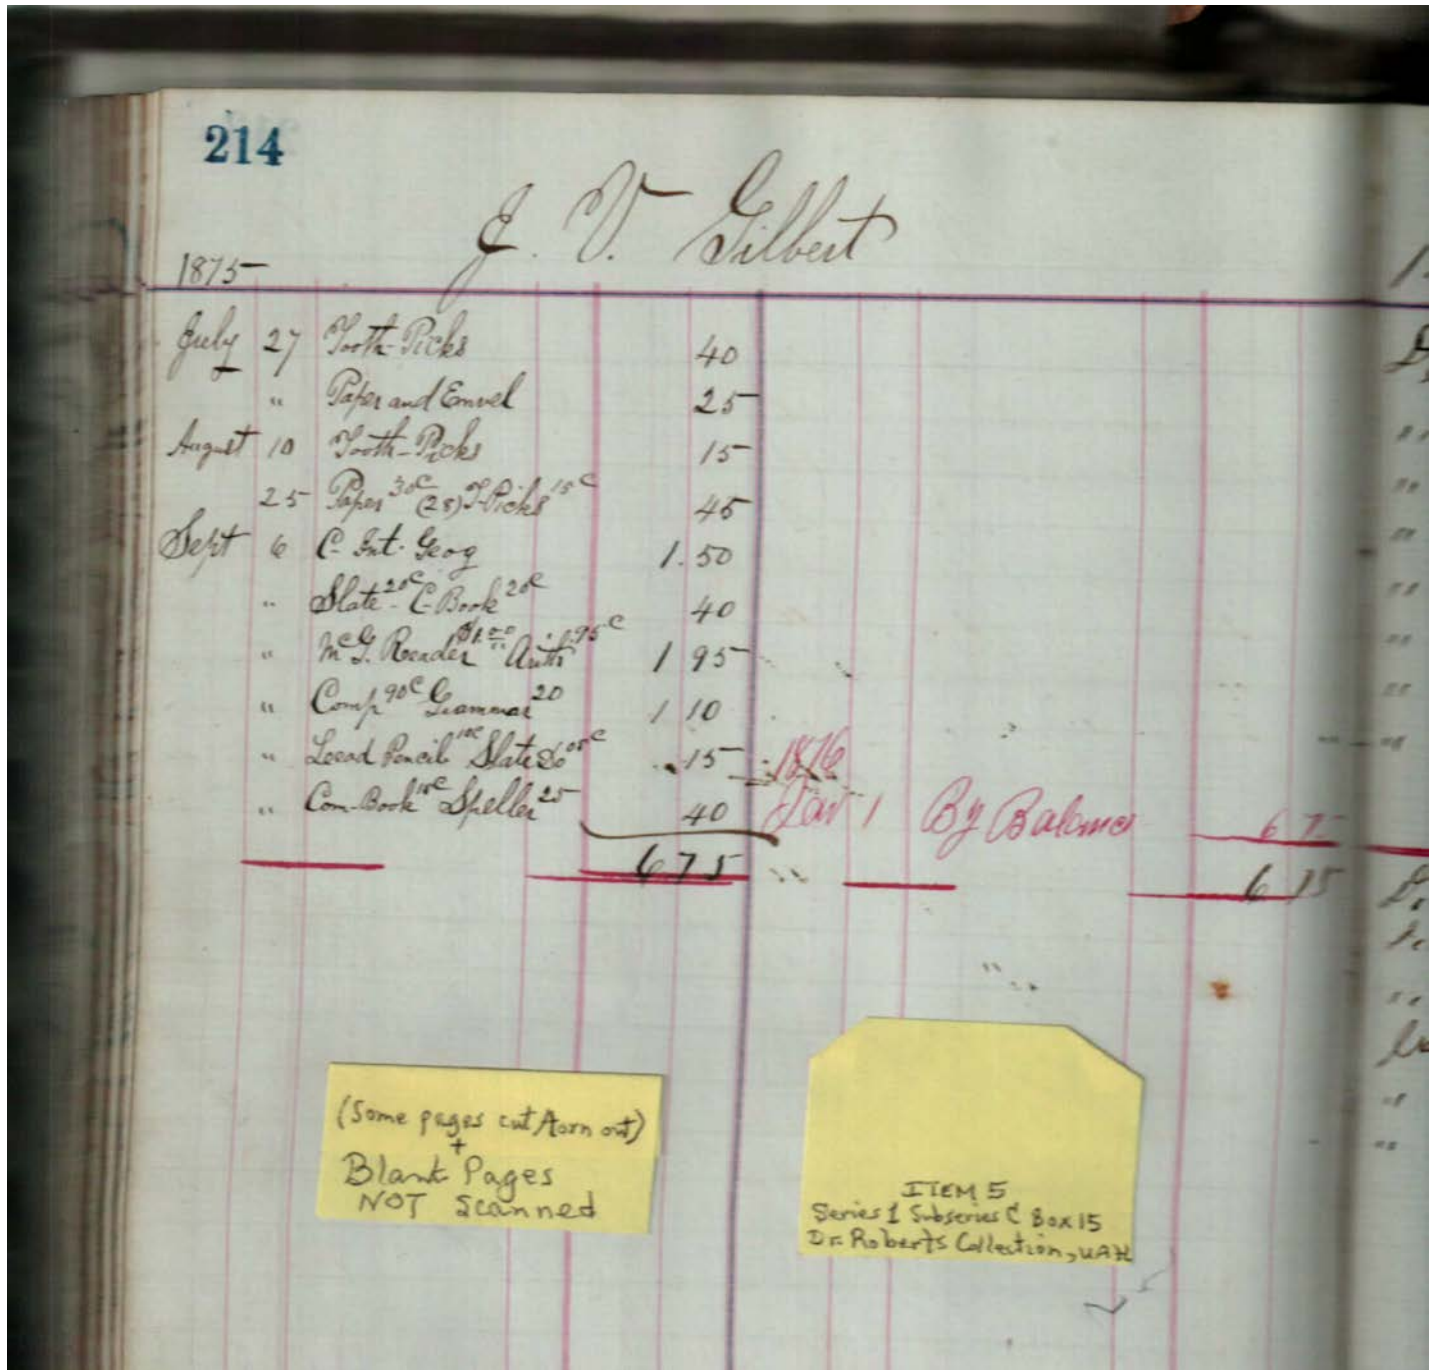 214
J. V. Gilbert
1875
July 27 Tooth-Picks 40
" Paper and Emvel 25
August 10 Tooth-Picks 15
25 Paper 30c (28) T-Picks 15c 45
Sept 6 C- Int. Geog 1.50
" Slate 20c - C-Book 20c 40
" McG. Reader $1.00 Arith 95c 1 95
" Comp 90c Grammar 20 1 10
" Leead Pencil 10c Slate Do 05c 15
" Com-Book 15c Speller 25 40
6 75
1876
Jan 1 By Balance 6 75
6 75
(Some pages cut/torn out)
+
Blank Pages
NOT Scanned
ITEM 5
Series 1 Subseries C Box 15
Dr. Roberts Collection, UAH